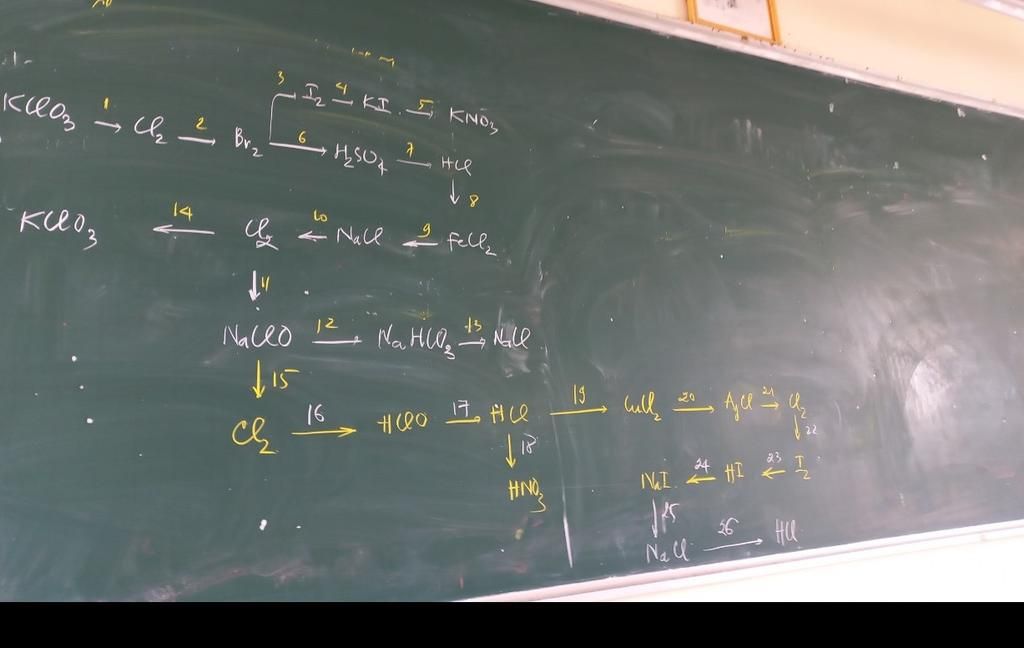 3 I₂ 4→ KI 5→ KNO₃
KClO₃ 1→ Cl₂ 2→ Br₂ 6→ H₂SO₄ 7→ HCl
↓ 8
KClO₃ ←14 Cl₂ ←10 NaCl ←9 FeCl₂
↓ 11
NaClO 12→ NaHCO₃ 13→ NaCl
↓ 15
Cl₂ 16→ HClO 17→ HCl 19→ CuCl₂ 20→ AgCl 21→ Cl₂
↓ 18 ↓ 22
HNO₃ NaI ←24 HI ←23 I₂
↓ 25
NaCl 26→ HCl